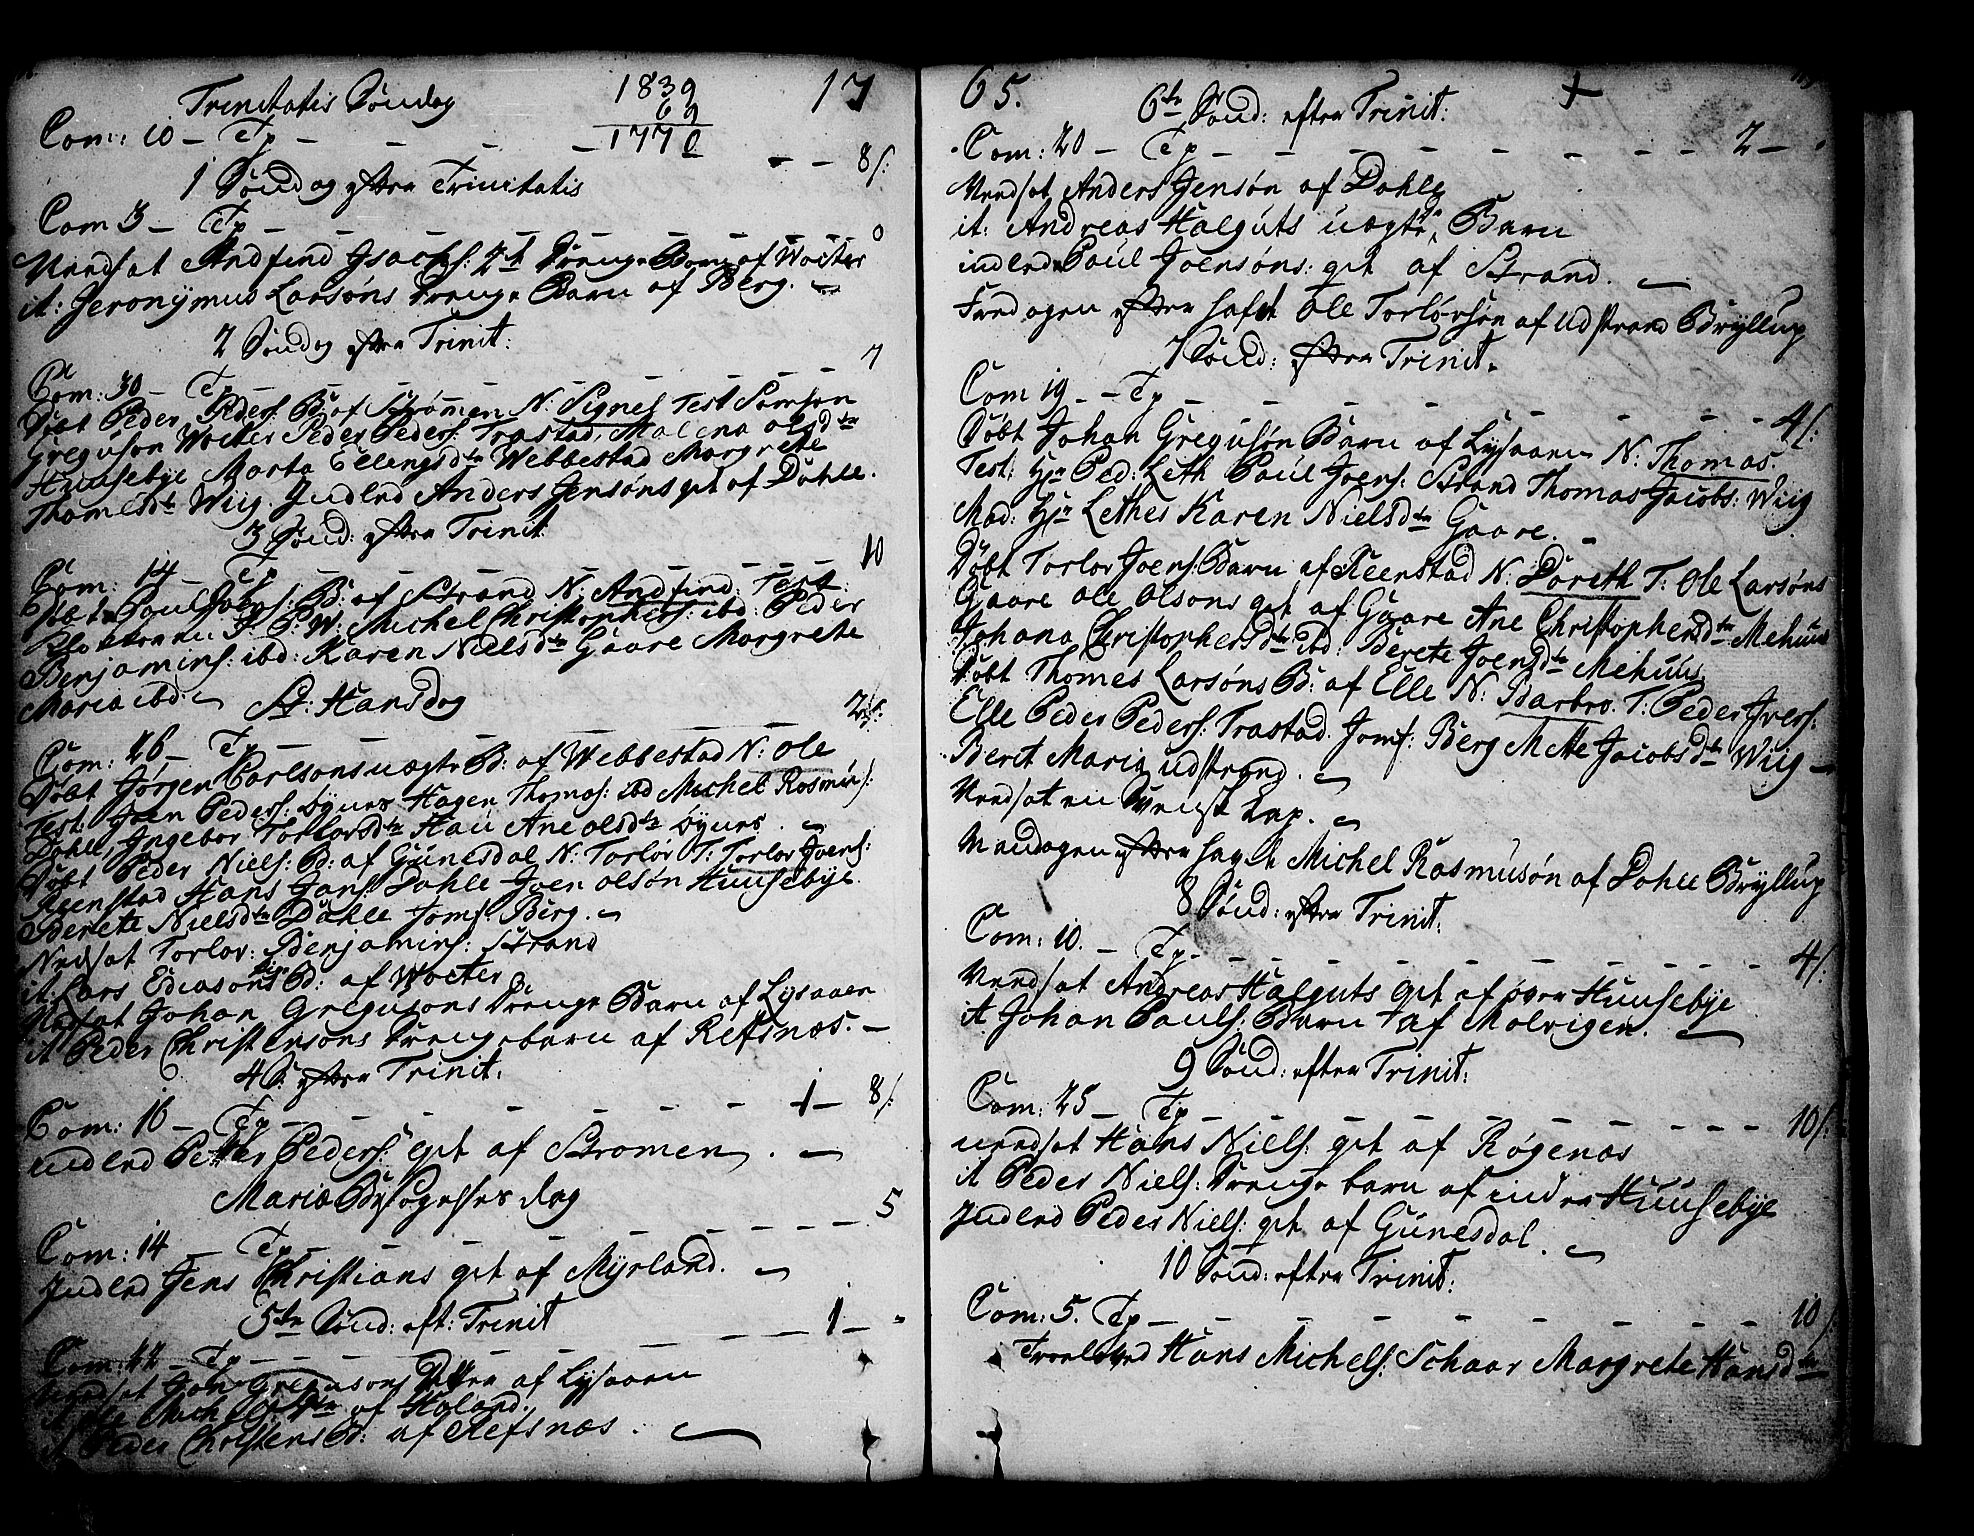 Trinitatis Søndag 1839 17
69
Com: 10 – Tp – – – – 1770
– – 8/:
1 Søndag efter Trinitatis
Com 3 – Tp – – – – – – 0
Nedsat Andfind Isachs: 2de Drenge Børn af Wocter
it: Jeronÿmus Larsøns Drenge Barn af Berg.
2 Søndag efter Trinit:
Com: 30 – Tp – – – – – – 7
Døbt Peder Peders: B: af Strømen N: Signel Test Samson
Gregusøn Wocter Peder Peders: Trastad, Malena Olsdtr
Huusebÿe Marta Ellingsdtr Webbestad Margrete
Thomesdtr Wiig. Indled Anders Jensøns qvt af Dahle.
3 Sønd: efter Trinit
Com: 14 – Tp – – – – – 10
Døbt Paul Joens: B: af Strand N: Andfind: Test:
P. W. Michel Christophers: ibd: Peder
Benjamins: ibd: Karen Nielsdtr Gaare Margrete
Maria ibd:
St: Hansdag
Com: 26 – Tp – – – – – – 2
Døbt Jørgen Carlsøns uægte B: af Webbestad N: Ole
Test: Joen Peders: Bÿnes Hagen Thomas: ibd Michel Rasmus:
Dahle, Ingebor Torlorsdtr Hau Ane Olsdtr Bÿnes.
Døbt Peder Niels: B: af Gunesdal N: Torlor T: Torlor Joens:
Reenstad Hans Jans: Dahle Joen Olsøn Huusebÿe
Berete Nielsdtr Dahle Jomf: Berg.
Nedsat Torlor: Benjamins: Strand
it: Lars Edeasøns B: af Wocter
Nedsat Johan Gregusøns Drenge Barn af Lysaaen
it Peder Christensøns Drengebarn af Refsnæs. –
4 S: efter Trinit.
Com: 16 – Tp – – – – – 1 – 8/:
indled Petter Peders: qvt af Strømen.
Mariæ Besøgelses dag
Com: 14 – Tp – – – – – 5
Indled Jens Christians qvt af Mÿrland.
5te Sønd: eft: Trinit
Com: 22 – Tp – – – – 1 –
Nedsat Joh: Gregusøns af Lysaaen
af Høland.
it Peder Christens B: af Refsnæs.
65.
6te Sønd: efter Trinit:
Com: 20 – Tp – – – – – – 2 –
Nedsat Anders Jensøn af Dahle
it: Andreas Halguts uægte Barn
indled Paul Joensøns: qvt af Strand.
Fredagen efter haft Ole Torlørsøn af Udstrand Brÿllup
7 Sønd: efter Trinit.
Com 19 – – Tp – – – – – – 4/:
Døbt Johan Gregusøn Barn af Lysaaen N: Thomas.
Test: Hr Ped: Leth Paul Joens: Strand Thomas Jacobs: Wiig
Mad: Hr Lethes Karen Nielsdtr Gaare.
Døbt Torlor Joens: Barn af Reenstad N: Doreth T: Ole Larsøns
Gaare Ole Olsøns qvt af Gaare Ane Christophersdtr Mehuus
Johana Christophersdtr ibd: Berete Joensdtr Mehuus.
Døbt Thomes Larsøns B: af Elle N: Barbro. T: Peder Ivers:
Elle Peder Peders: Trastad. Jomf: Berg Mette Jacobsdtr Wiig –
Berit Maria udstrand.
Nedsat en Svensk Lap.
Mandagen efter haft Michel Rasmusøn af Dahle Brÿllup
8 Sønd: efter Trinit:
Com: 10. – Tp – – – – – – 4/:
Nedsat Andreas Halguts qvt af øver Huusebÿe
it Johan Pauls: Barn af Molvigen.
9 Sønd: efter Trinit:
Com: 25 – Tp – – – – – 10/:
nedsat Hans Niels: qvt af Røgenæs
it Peder Niels: Drenge barn af inder Huusebÿe
Indled Peder Niels: qvt af Gunesdal.
10 Sønd: efter Trinit:
Com: 5. Tp – – – – – – 10/:
Hans Michels: Schaar Margrete Hansdtr